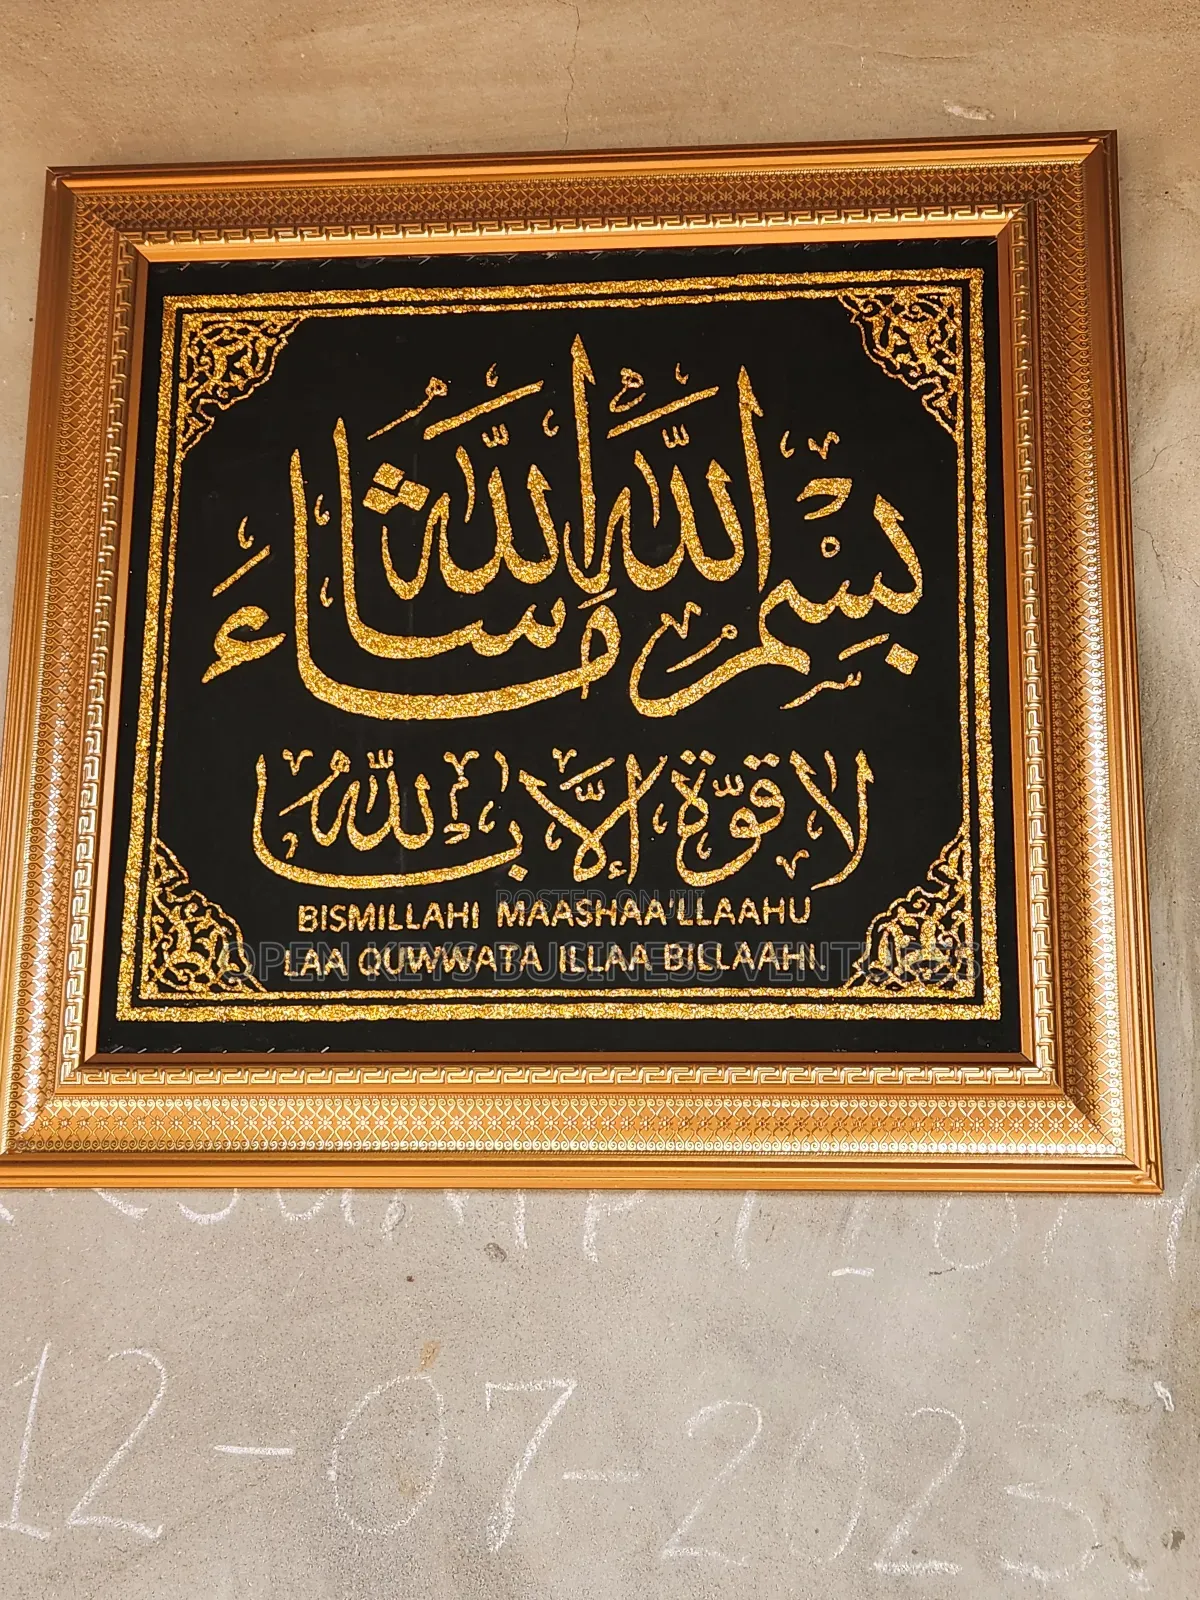 بِسْمِ اللّٰهِ مَا شَاءَ اللّٰهُ
لَا قُوَّةَ إِلَّا بِاللّٰهِ
BISMILLAHI MAASHAA'LLAAHU
LAA QUWWATA ILLAA BILLAAHI.
POSTED ON JIJI
OPEN KEYS BUSINESS VENTURES
12-07-2023